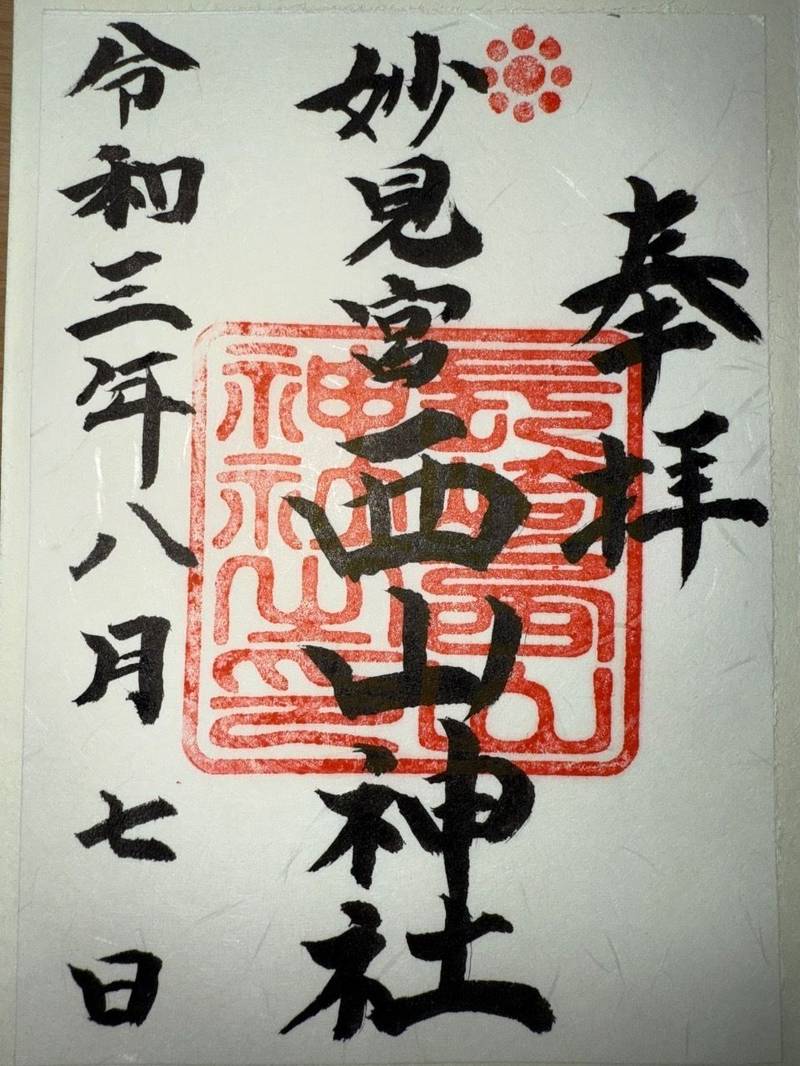 奉拝
妙見宮西山神社
令和三年八月七日